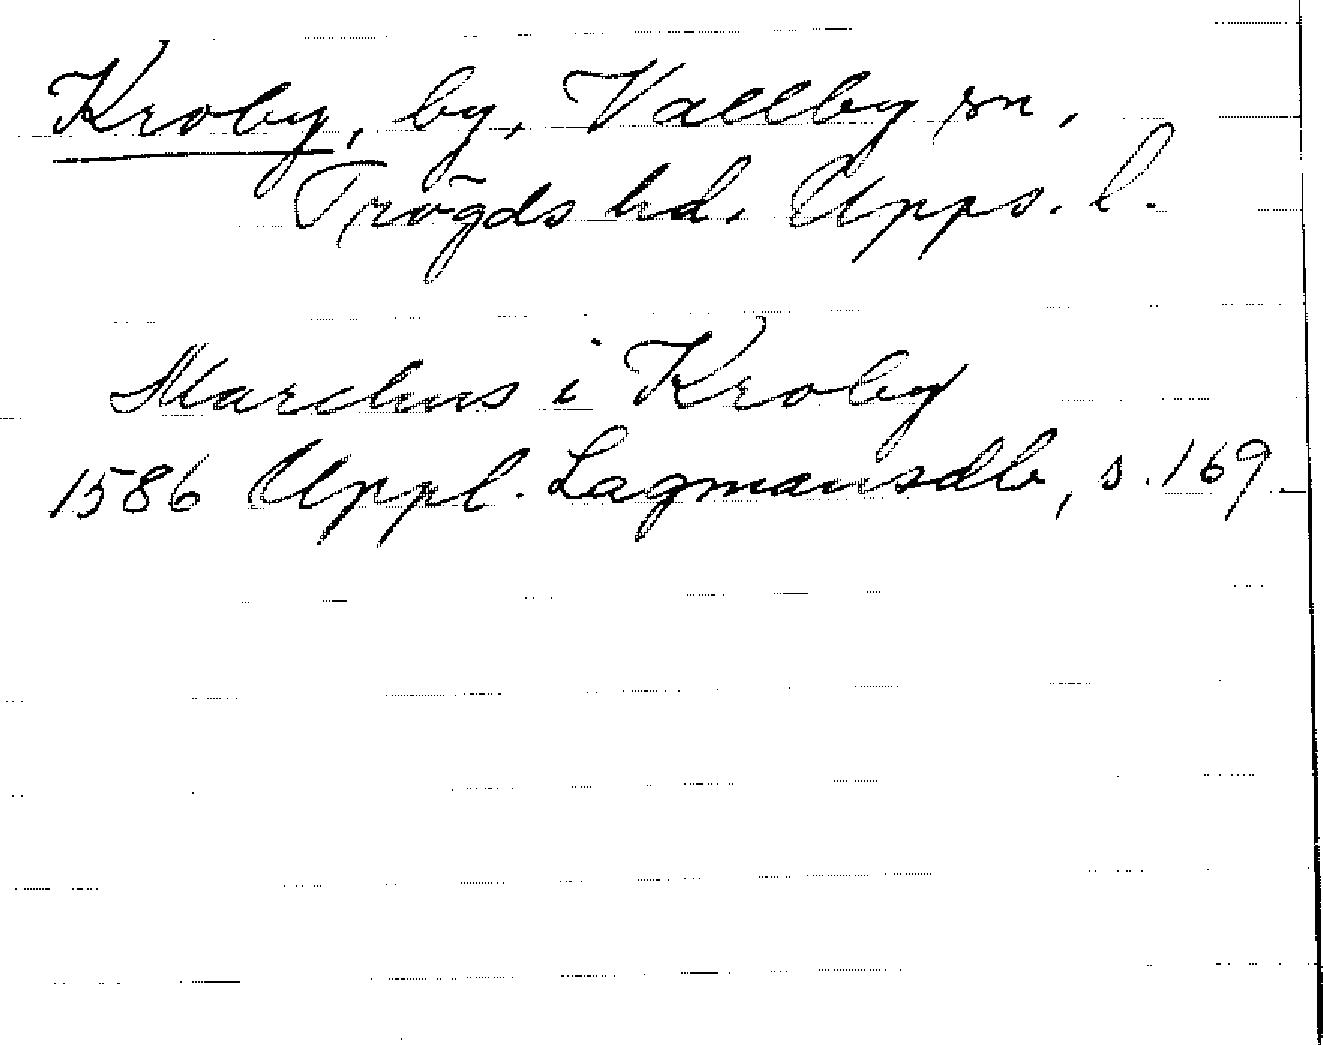 Kroby, by, Vallby sn,
Trögds hd. Upps. l.
Marchus i Kroby
1586 Uppl. Lagmansdb, s. 169.